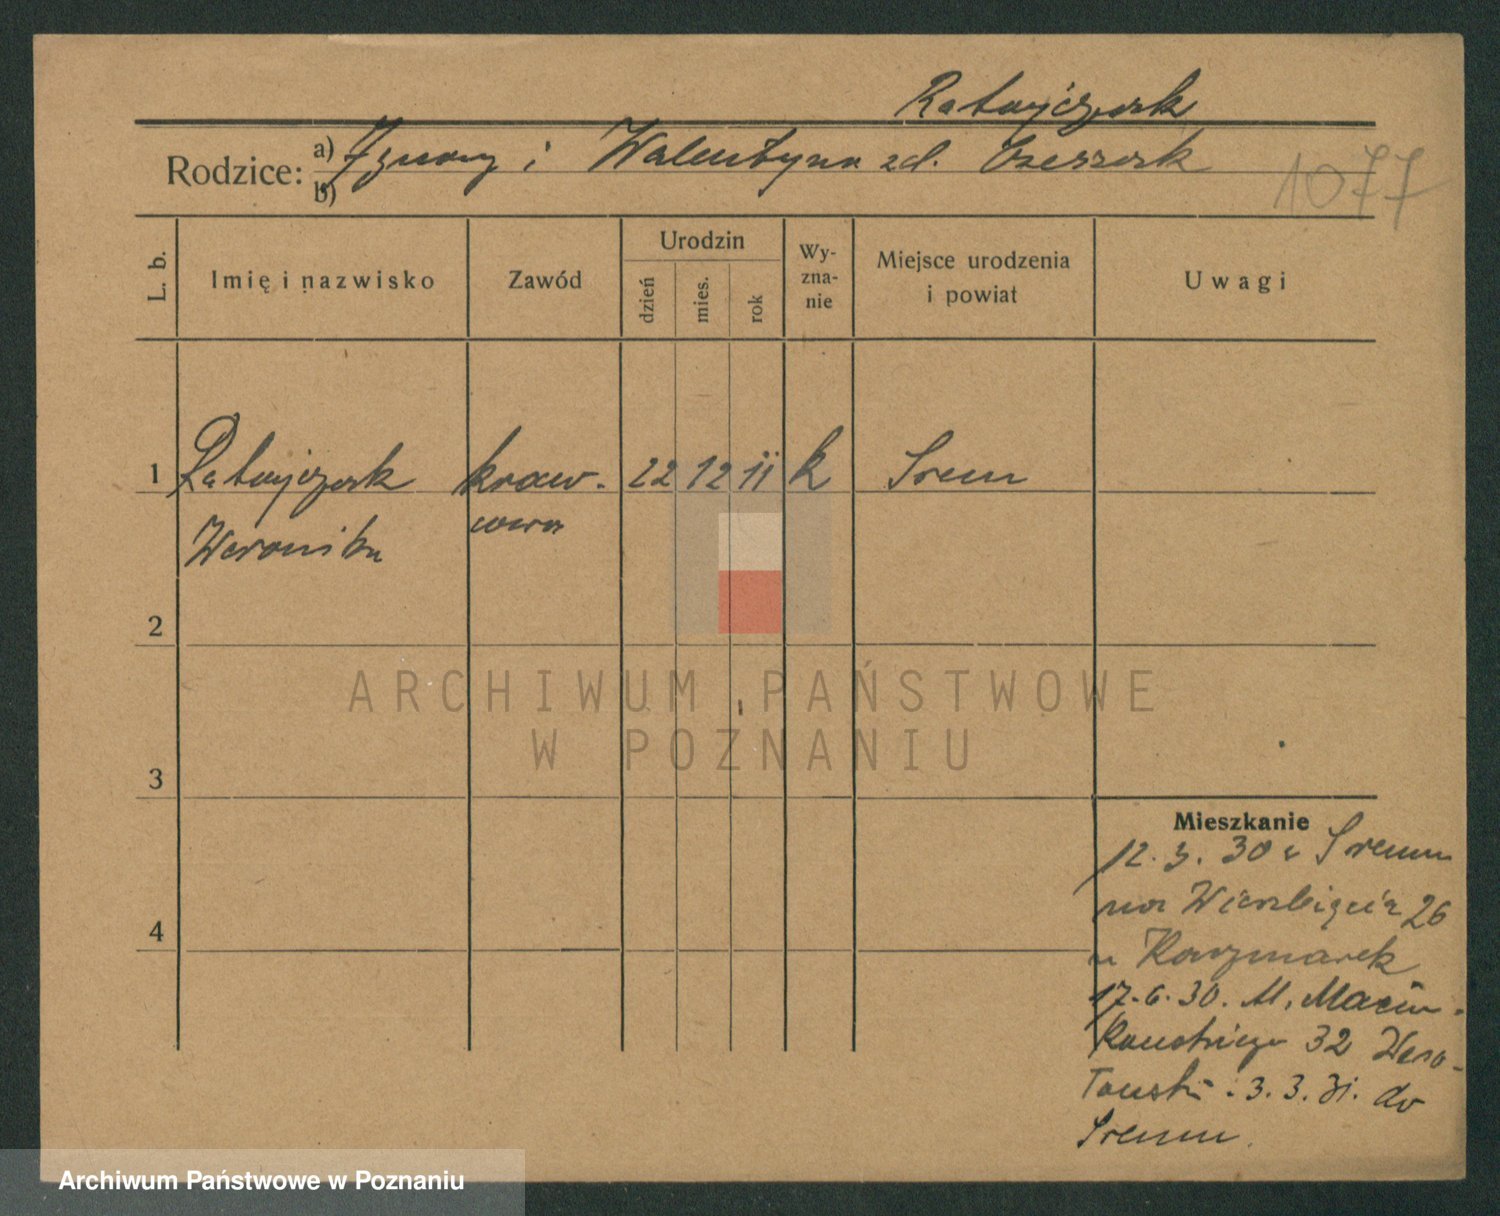 Ratajczak
Rodzice: a) Ignacy i Walentyna zd.
b)
1077
L. b.
Imię i nazwisko
Zawód
Urodzin
dzień
mies.
rok
Wy-
zna-
nie
Miejsce urodzenia
i powiat
Uwagi
1 Ratajczak kraw- 22 12 11 k Srem
Weronika cowa
2
3
4
Mieszkanie
12.3.30 z Sremu
na Wierzbięcia 26
u Kaczmarek
17.6.30. M. Marcin-
kowskiego 32
3.3.31. do
Sremu.
ARCHIWUM PAŃSTWOWE
W POZNANIU
Archiwum Państwowe w Poznaniu